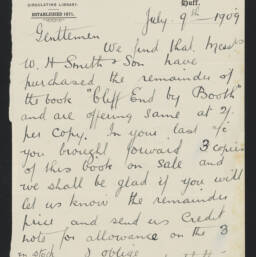 CIRCULATING LIBRARY.
ESTABLISHED 1871.
Huff.
July 9th 1909
Gentlemen
We find that Messrs
W. H Smith & Son have
purchased the remainder of
the book "Cliff End by Booth"
and are offering same at 2/-
per Copy. In your last a/c
you brought forward 3 copies
of this book on Sale and
we shall be glad if you will
let us know the remainder
price and send us Credit
note for allowance on the 3
in stock & oblige